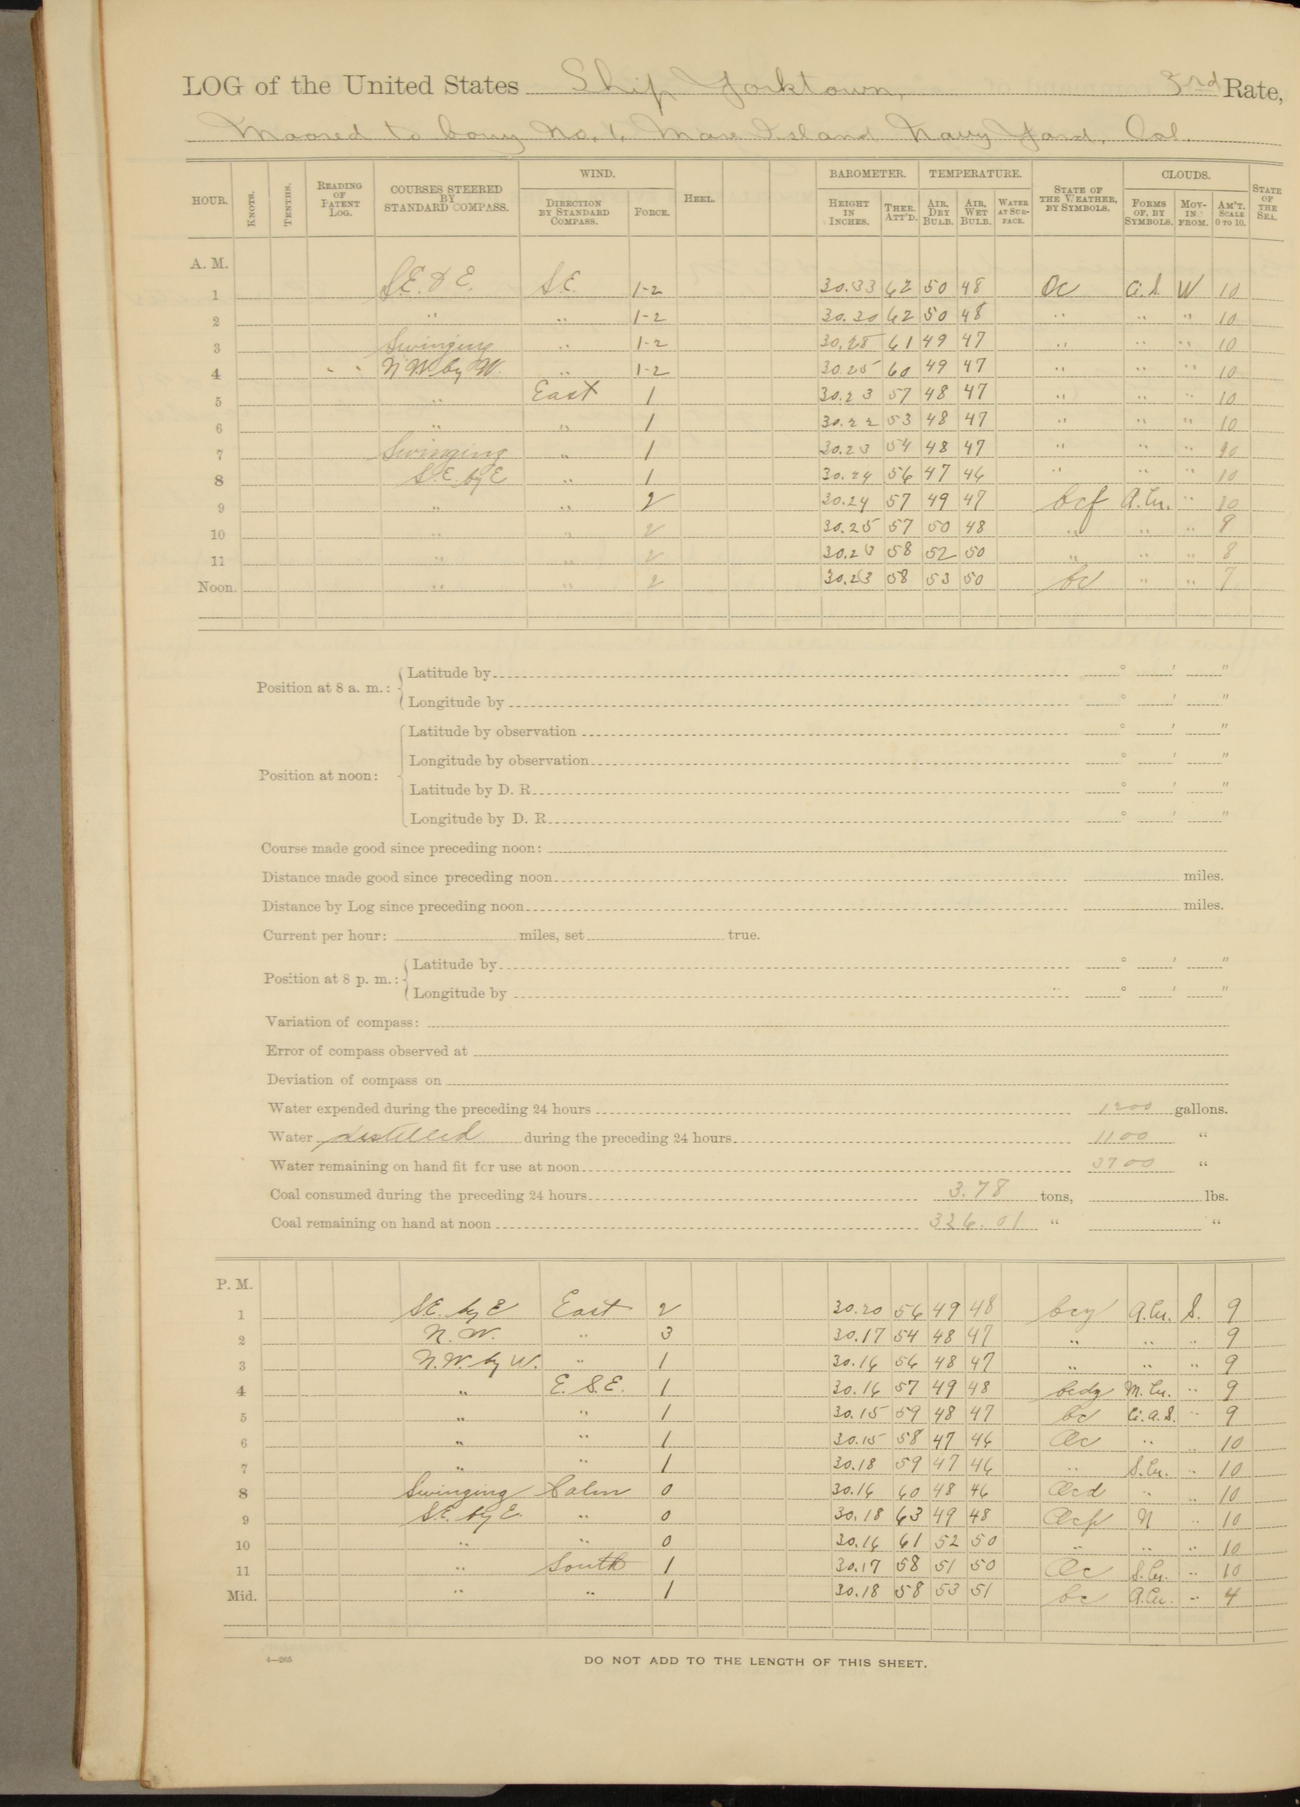 LOG of the United States Ship Yorktown, 3rd Rate,
Moored to bouy No. 1, Mare Island Navy Yard, Cal.
HOUR. KNOTS. TENTHS. READING OF PATENT LOG. COURSES STEERED BY STANDARD COMPASS. WIND. DIRECTION BY STANDARD COMPASS. FORCE. HEEL. BAROMETER. HEIGHT IN INCHES. THER. ATT'D. TEMPERATURE. AIR, DRY BULB. AIR, WET BULB. WATER AT SURFACE. STATE OF THE WEATHER, BY SYMBOLS. CLOUDS. FORMS OF, BY SYMBOLS. MOVING FROM. AM'T. SCALE 0 TO 10. STATE OF THE SEA.
A. M.
1 S.E. & E. S.E. 1-2 30.33 62 50 48 Oc Ci.S. W 10
2 " " 1-2 30.30 62 50 48 " " " 10
3 Swinging " 1-2 30.28 61 49 47 " " " 10
4 " " N.W. by W. " 1-2 30.25 60 49 47 " " " 10
5 " East 1 30.23 57 48 47 " " " 10
6 " " 1 30.22 53 48 47 " " " 10
7 Swinging " 1 30.23 54 48 47 " " " 10
8 S.E. by E " 1 30.24 56 47 46 " " " 10
9 " " 2 30.24 57 49 47 bcf A.Cu. " 10
10 " " 2 30.25 57 50 48 " " " 9
11 " " 2 58 52 50 " " " 8
Noon. " " 2 30.23 58 53 50 bc " " 7
Position at 8 a. m.: Latitude by ° ' "
Longitude by ° ' "
Position at noon: Latitude by observation ° ' "
Longitude by observation ° ' "
Latitude by D. R. ° ' "
Longitude by D. R. ° ' "
Course made good since preceding noon:
Distance made good since preceding noon miles.
Distance by Log since preceding noon miles.
Current per hour: miles, set true.
Position at 8 p. m.: Latitude by ° ' "
Longitude by ° ' "
Variation of compass:
Error of compass observed at
Deviation of compass on
Water expended during the preceding 24 hours 1200 gallons.
Water distilled during the preceding 24 hours 1100 "
Water remaining on hand fit for use at noon 3700 "
Coal consumed during the preceding 24 hours 3.78 tons, lbs.
Coal remaining on hand at noon 326.01 " "
P. M.
1 SE. by E East 2 30.20 56 49 48 bcg A.Cu. S. 9
2 N.W. " 3 30.17 54 48 47 " " " 9
3 N.W. by W. " 1 30.16 56 48 47 " " " 9
4 " E.S.E. 1 30.16 57 49 48 bcdg M.Cu. " 9
5 " " 1 30.15 59 48 47 bc Ci.a.S. " 9
6 " " 1 30.15 58 47 46 Oc " " 10
7 " " 1 30.18 59 47 46 " S.Cu. " 10
8 Swinging Calm 0 30.16 60 48 46 Ocd " " 10
9 S.E. by E. " 0 30.18 63 49 48 Ocp N " 10
10 " " 0 30.16 61 52 50 " " " 10
11 " South 1 30.17 58 51 50 Oc S.Cu. " 10
Mid. " " 1 30.18 58 53 51 bc A.Cu. " 4
4—265
DO NOT ADD TO THE LENGTH OF THIS SHEET.